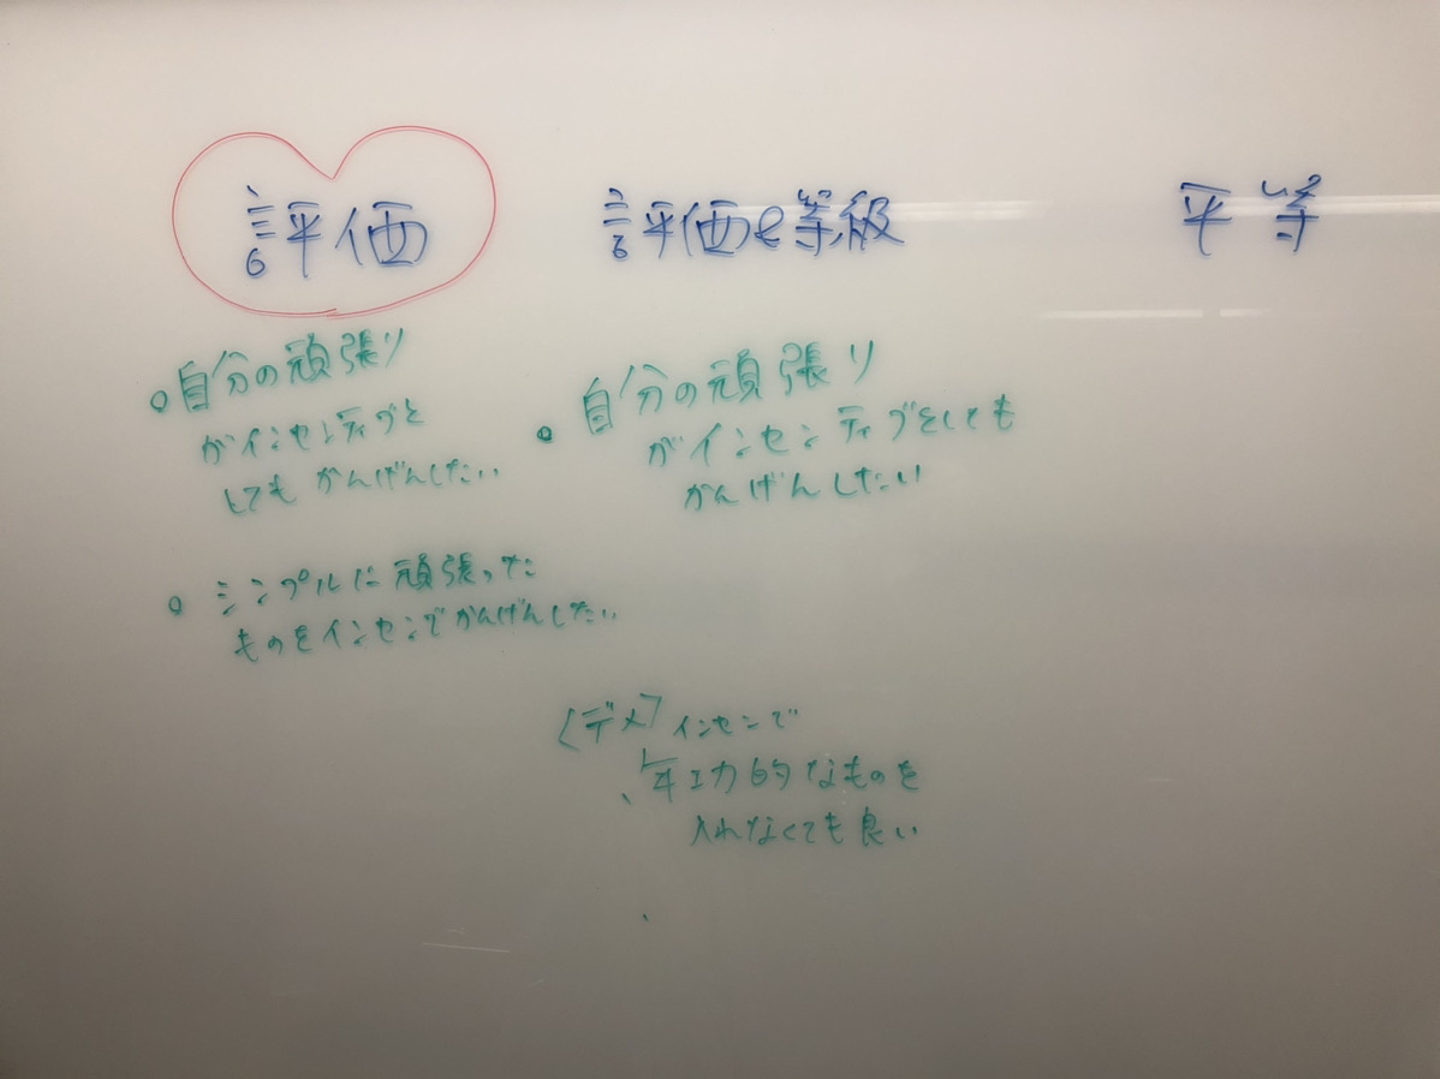 評価
・自分の頑張り
がインセンティブと
しても かんげんしたい
・シンプルに頑張った
ものをインセンでかんげんしたい
評価と等級
・自分の頑張り
がインセンティブとしても
かんげんしたい
[デメ] インセンで
年功的なものを
入れなくても良い
平等